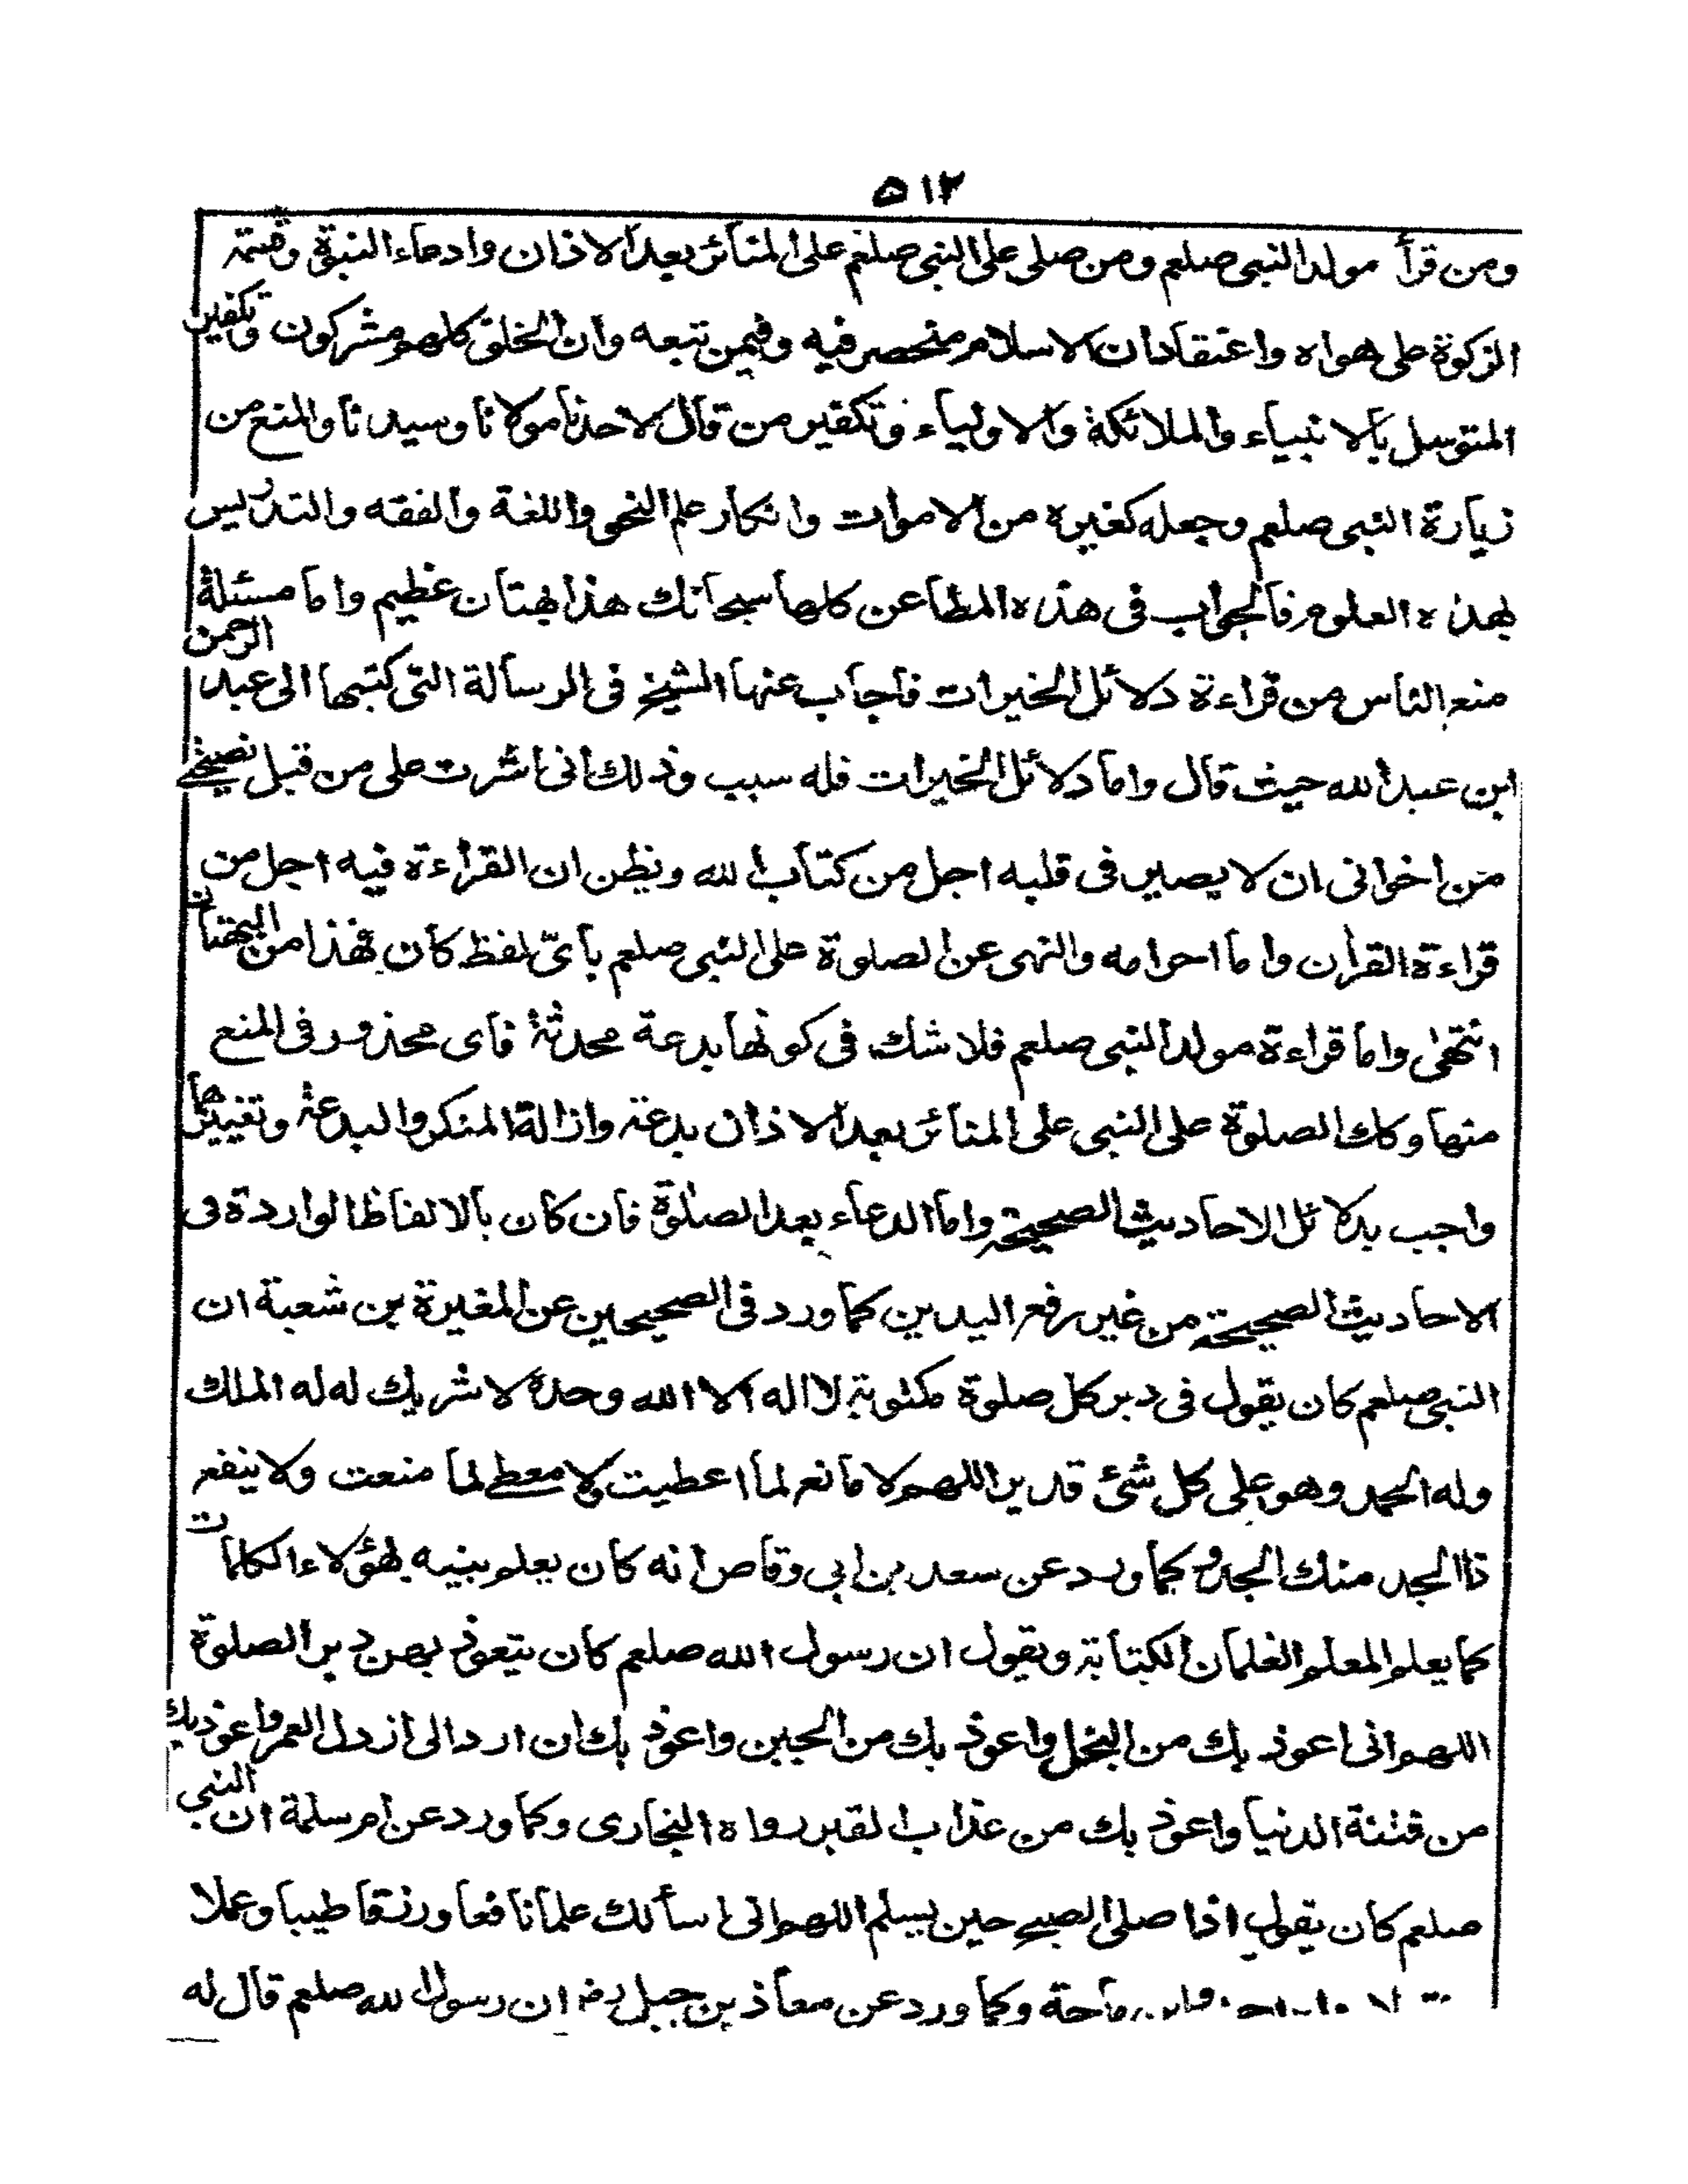 ٥١٢
ومن قرأ مولد النبی صلعم ومن صلی علی النبی صلعم علی المنائر بعد الاذان وادعاء النبوة وقسمة
الزكوة علی هواه واعتقاد ان الاسلام منحصر فیه وفیمن تبعه وان الخلق كلهم مشركون وتكفیر
المتوسل بالانبیاء والملائكة والاولیاء وتكفیر من قال لاحد نامولانا وسیدنا والمنع من
زیارة النبی صلعم وجعله كغیره من الاموات وانكار علم النحو واللغة والفقه والتدریس
لهذه العلوم فالجواب فی هذه المطاعن كلها سبحانك هذا بهتان عظیم واما مسئلة
منع الناس من قراءة دلائل الخیرات فاجاب عنها الشیخ فی الرسالة التی كتبها الی عبد الرحمن
ابن عبد الله حیث قال واما دلائل الخیرات فله سبب وذلك انی اشرت علی من قبل نصیحتی
من اخوانی ان لا یصیر فی قلبه اجل من كتاب الله ویظن ان القراءة فیه اجل من
قراءة القران واما احرامه والنهی عن الصلوة علی النبی صلعم بای لفظ كان فهذا من البهتان
انتهی واما قراءة مولد النبی صلعم فلا شك فی كونها بدعة محدثة فای محذور فی المنع
منها وكك الصلوة علی النبی علی المنائر بعد الاذان بدعة وازالة المنكر والبدعة وتغییرها
واجب بدلائل الاحادیث الصحیحة واما الدعاء بعد الصلوة فان كان بالالفاظ الواردة فی
الاحادیث الصحیحة من غیر رفع الیدین كما ورد فی الصحیحین عن المغیرة بن شعبة ان
النبی صلعم كان یقول فی دبر كل صلوة مكتوبة لا اله الا الله وحده لا شریك له له الملك
وله الحمد وهو علی كل شئ قدیر اللهم لا مانع لما اعطیت ولا معطی لما منعت ولا ینفع
ذا الجد منك الجد وكما ورد عن سعد بن ابی وقاص انه كان یعلم بنیه بهؤلاء الكلمات
كما یعلم المعلم الغلمان الكتابة ویقول ان رسول الله صلعم كان یتعوذ بهن دبر الصلوة
اللهم انی اعوذ بك من البخل واعوذ بك من الجبن واعوذ بك ان ارد الی ارذل العمر واعوذ بك
من فتنة الدنیا واعوذ بك من عذاب القبر رواه البخاری وكما ورد عن ام سلمة ان النبی
صلعم كان یقول اذا صلی الصبح حین یسلم اللهم انی اسألك علما نافعا ورزقا طیبا وعملا
ماجة وكما ورد عن معاذ بن جبل رض ان رسول الله صلعم قال له